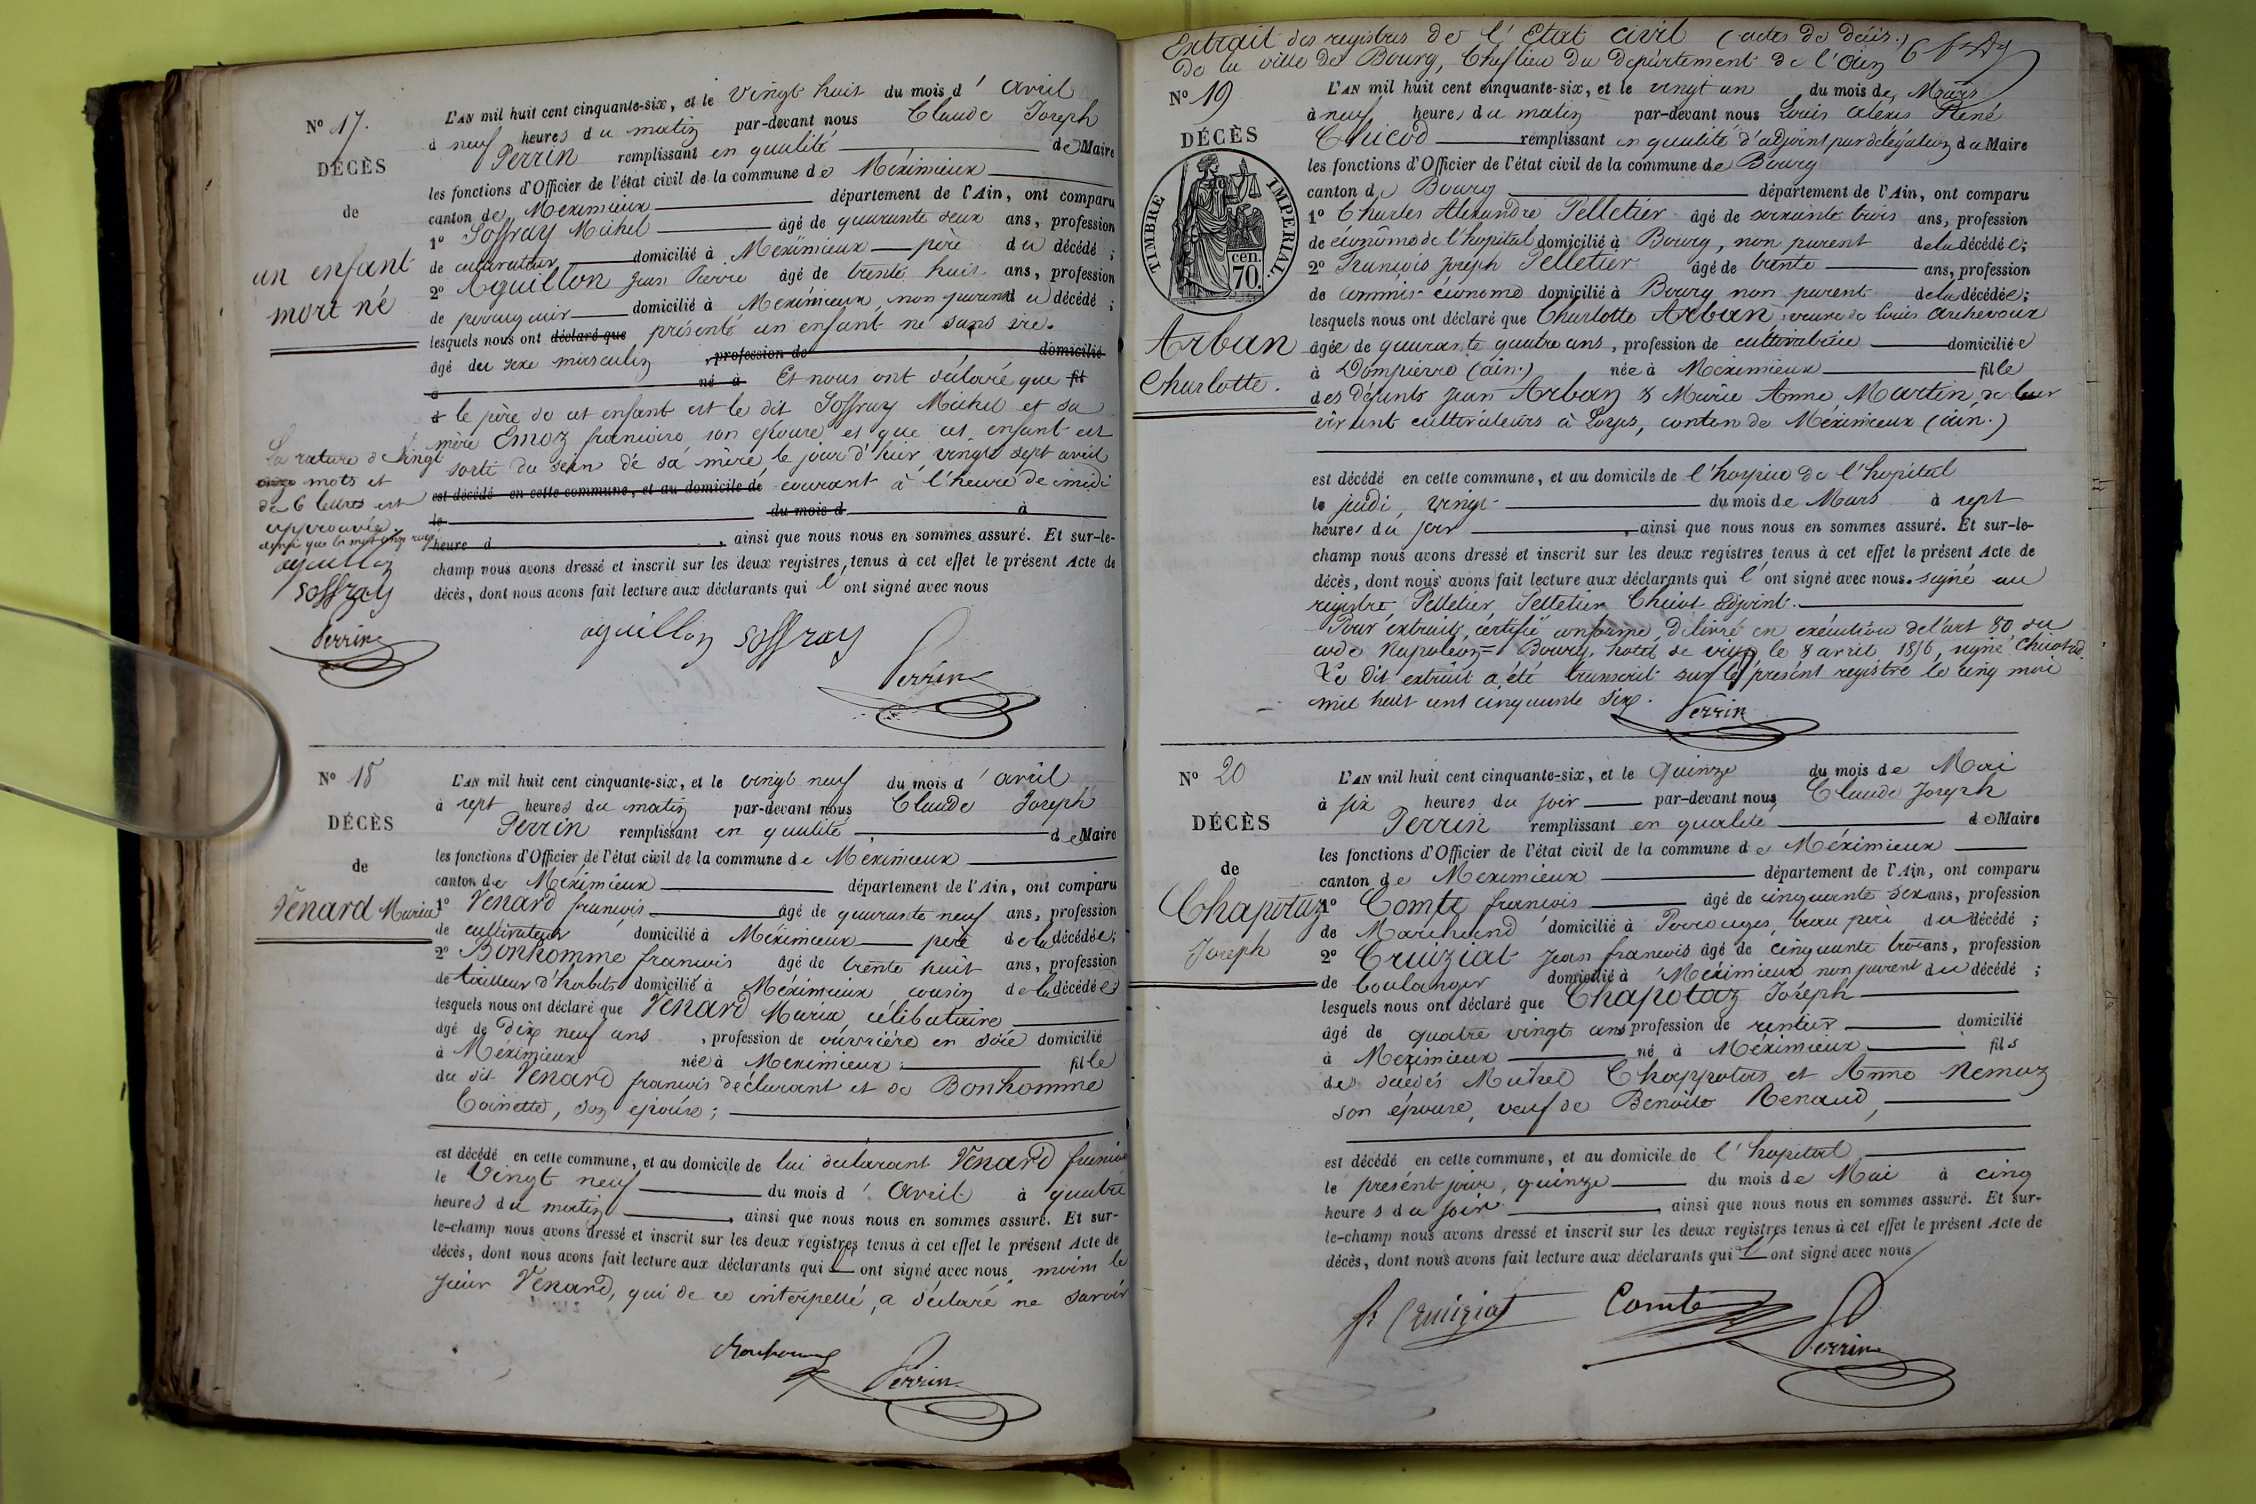 N° 17.
DÉCÈS
de
un enfant
mort né
L'AN mil huit cent cinquante-six, et le vingt huit du mois d'avril
à neuf heures du matin par-devant nous Claude Joseph
Perrin remplissant en qualité de Maire
les fonctions d'Officier de l'état civil de la commune de Méximieux
canton de Meximieux département de l'Ain, ont comparu
1° Soffray Michel âgé de quarante deux ans, profession
de cultivateur domicilié à Meximieux père du décédé ;
2° Aguillon Jean Pierre âgé de trente huit ans, profession
de perruquier domicilié à Meximieux, non parent du décédé ;
lesquels nous ont déclaré que présenté un enfant né sans vie.
âgé du sexe masculin, profession de domicilié
à né à Et nous ont déclaré que fil
d le père de cet enfant est le dit Soffray Michel et sa
mère Emoz francoise son epouse et que cet enfant est
sorti du sein de sa mère, le jour d'hier vingt sept avril
est décédé en cette commune, et au domicile de courant à l'heure de midi
le du mois d à
heure d , ainsi que nous nous en sommes assuré. Et sur-le-
champ nous avons dressé et inscrit sur les deux registres, tenus à cet effet le présent Acte de
décès, dont nous avons fait lecture aux déclarants qui l'ont signé avec nous
La rature de vingt
mots et
de 6 lettres est
approuvée
ainsi que le mot onze rayé
aguillon
Soffray
Perrin
aguillon Soffray
Perrin
N° 18
DÉCÈS
de
Venard Maria
L'AN mil huit cent cinquante-six, et le vingt neuf du mois d'avril
à sept heures du matin par-devant nous Claude Joseph
Perrin remplissant en qualité de Maire
les fonctions d'Officier de l'état civil de la commune de Méximieux
canton de Méximieux département de l'Ain, ont comparu
1° Venard francois âgé de quarante neuf ans, profession
de cultivateur domicilié à Méximieux père de la décédée ;
2° Bonhomme francois âgé de trente huit ans, profession
de tailleur d'habits domicilié à Méximieux cousin de la décédée ;
lesquels nous ont déclaré que Venard Maria célibataire
âgé de dix neuf ans , profession de ouvrière en soie domicilié
à Méximieux née à Meximieux fille
du dit Venard francois déclarant et de Bonhomme
Toinette, son epouse ;
est décédé en cette commune, et au domicile de lui déclarant Venard francois
le vingt neuf du mois d'avril à quatre
heures du matin , ainsi que nous nous en sommes assuré. Et sur-
le-champ nous avons dressé et inscrit sur les deux registres tenus à cet effet le présent Acte de
décès, dont nous avons fait lecture aux déclarants qui l'ont signé avec nous, moins le
sieur Venard, qui de ce interpellé, a déclaré ne savoir
Bonhomme
Perrin
Extrait des registres de l'Etat civil (actes de décès.)
de la ville de Bourg, Chef lieu du département de l'Ain
N° 19
DÉCÈS
TIMBRE IMPERIAL.
cen.
70.
Arban
Charlotte.
L'AN mil huit cent cinquante-six, et le vingt un du mois de Mars
à neuf heures du matin par-devant nous Louis Alexis René
Chicod remplissant en qualité d'adjoint par délégation du Maire
les fonctions d'Officier de l'état civil de la commune de Bourg
canton de Bourg département de l'Ain, ont comparu
1° Charles Alexandre Pelletier âgé de soixante trois ans, profession
de économe de l'hopital domicilié à Bourg, non parent de la décédée ;
2° François Joseph Pelletier âgé de trente ans, profession
de commis économe domicilié à Bourg non parent de la décédée ;
lesquels nous ont déclaré que Charlotte Arban, veuve de Louis Archevoux
âgée de quarante quatre ans, profession de cultivatrice domiciliée
à Dompierre (ain.) née à Meximieux fille
des défunts Jean Arban & Marie Anne Martin, de leur
vivant cultivateurs à Loyes, canton de Méximieux (ain.)
est décédé en cette commune, et au domicile de l'hospice de l'hopital
le jeudi, vingt du mois de Mars à sept
heures du soir , ainsi que nous nous en sommes assuré. Et sur-le-
champ nous avons dressé et inscrit sur les deux registres tenus à cet effet le présent Acte de
décès, dont nous avons fait lecture aux déclarants qui l'ont signé avec nous. signé au
registre, Pelletier, Pelletier, Chicot adjoint.
Pour extrait, certifié conforme, délivré en exécution de l'art 80, du
code Napoléon = Bourg, hotel de ville le 8 avril 1856, signé Chicot ad.
Le dit extrait a été transcrit sur le présent registre le cinq mai
mil huit cent cinquante six. Perrin
N° 20
DÉCÈS
de
Chapotaz
Joseph
L'AN mil huit cent cinquante-six, et le quinze du mois de Mai
à six heures du soir par-devant nous Claude Joseph
Perrin remplissant en qualité de Maire
les fonctions d'Officier de l'état civil de la commune de Méximieux
canton de Meximieux département de l'Ain, ont comparu
1° Comte francois âgé de cinquante six ans, profession
de Marchand domicilié à Perrouges, beau père du décédé ;
2° Cruiziat Jean francois âgé de cinquante trois ans, profession
de boulanger domicilié à Méximieux non parent du décédé ;
lesquels nous ont déclaré que Chapotaz Joseph
âgé de quatre vingts ans profession de rentier domicilié
à Meximieux né à Méximieux fils
des décédés Michel Chappotas et Anne Nemoz
son épouse, veuf de Benoite Renaud,
est décédé en cette commune, et au domicile de l'hopital
le présent jour, quinze du mois de Mai à cinq
heures du soir , ainsi que nous nous en sommes assuré. Et sur-
le-champ nous avons dressé et inscrit sur les deux registres tenus à cet effet le présent Acte de
décès, dont nous avons fait lecture aux déclarants qui l'ont signé avec nous
Cruiziat Comte
Perrin